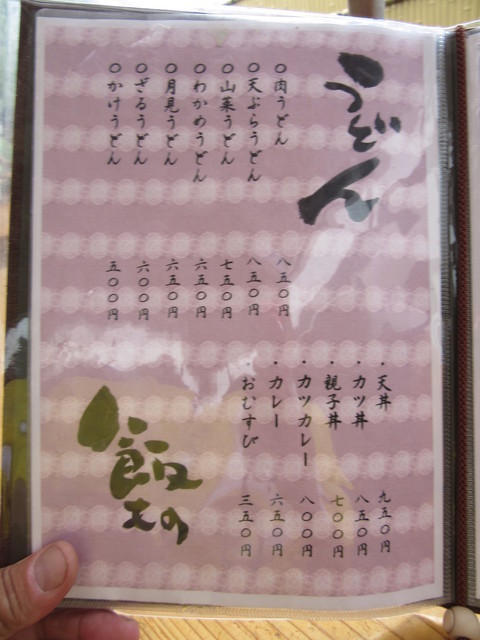 うどん
○肉うどん 八五〇円
○天ぷらうどん 八五〇円
○山菜うどん 七五〇円
○わかめうどん 六五〇円
○月見うどん 六五〇円
○ざるうどん 六〇〇円
○かけうどん 五〇〇円
・天丼 九五〇円
・カツ丼 八五〇円
・親子丼 七〇〇円
・カツカレー 八〇〇円
・カレー 六五〇円
・おむすび 三五〇円
御飯もの